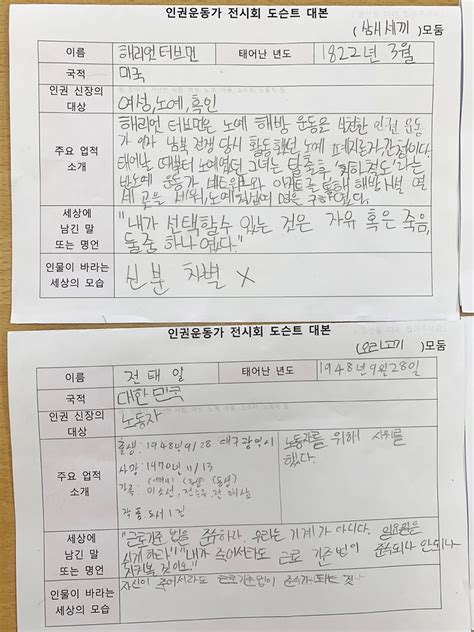 인권운동가 전시회 도슨트 대본
( 참새끼 )모둠
이름 해리엇 터브먼 태어난 년도 1822년 3월
국적 미국
인권 신장의 대상 여성, 노예, 흑인
주요 업적 소개
해리엇 터브먼은 노예 해방 운동은 실천한 인권 운동
가 이자 남북 전쟁 당시 활동했던 노예 폐지론자, 간첩이다.
태어날 때부터 노예였던 그녀는 탈출후 '지하철도'라는
반노예 운동가 네트워크와 아지트를 통해 해방시설 열
세 곳을 세워, 노예 명을 구했었다.
세상에 남긴 말 또는 명언
"내가 선택할수 있는 것은 자유 혹은 죽음,
둘중 하나 였다."
인물이 바라는 세상의 모습 신분 차별 X
인권운동가 전시회 도슨트 대본
(오리고기 )모둠
이름 전태일 태어난 년도 1948년 9월 28일
국적 대한민국
인권 신장의 대상 노동자
주요 업적 소개
출생 : 1948년 9/28 대구광역시
사망 : 1970년 11/13
가족 : 이소선, 전
(어머니) (동생) (동생)
작품 도서 1권
노동자를 위해 시위를
했다.
세상에 남긴 말 또는 명언
"근로기준 법을 준수하라. 우리는 기계가 아니다. 일요일은
쉬게 하라!" "내가 죽어서라도 근로 기준 법이 준수되나 안되나
지켜볼 것이오"
인물이 바라는 세상의 모습
자신이 죽어서라도 근로기준법이 준수가 되는 것